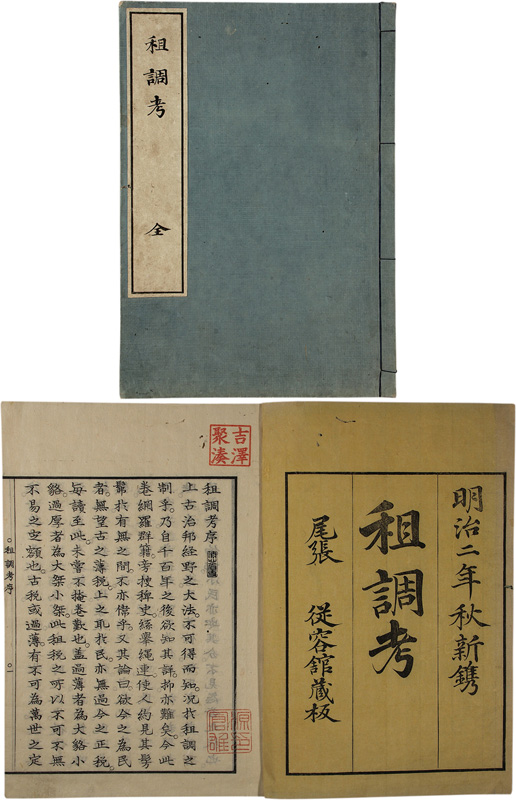 租調考 全
明治二年秋新鐫
租調考
尾張 從容館藏板
吉澤
聚湊
租調考序
上古治邦經野之大法不可得而知況扵租調之
制乎乃自千百年之後欲知其詳抑亦難矣今此
卷網羅群籍旁捜稗史縷舉繩連使人約見其髣
髴扵有無之間不亦偉乎又其論曰欲今之為民
者無望古之薄税上之取扵民亦無過今之正税
毎讀至此未嘗不掩卷歎也盖過薄者為大貉小
貉過厚者為大桀小桀此租税之所以不可不無
不易之定額也古税或過薄有不可為萬世之定
租調考序